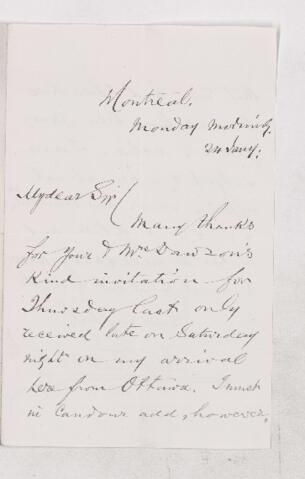 Montreal.
Monday Morning.
24 Jany.
My dear Sir
Many thanks
for your & Mrs Dawson's
Kind invitation for
Thursday last only
received late on Saturday
night on my arrival
here from Ottawa. I must
in Candour add, however,